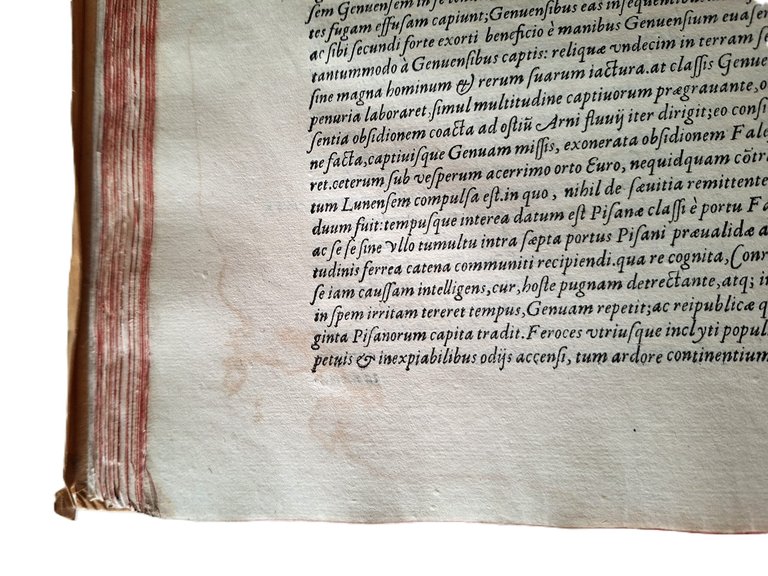 sem Genuensem in se
tes fugam effusam capiunt; Genuensibus eas insequentibus
ac sibi secundi forte exorti beneficio è manibus Genuensium euase
tantummodo à Genuensibus captis: reliquæ vndecim in terram
sine magna hominum & rerum suarum iactura. at classis Genue
penuria laboraret. simul multitudine captiuorum prægrauante, o
sentia obsidionem coacta ad ostiũ Arni fluuij iter dirigit; eo consi
ne facta, captiuisque Genuam missis, exonerata obsidionem Fale
ret. ceterum sub vesperum acerrimo orto Euro, nequidquam cõtra
tum Lunensem compulsa est. in quo, nihil de sæuitia remittente
duum fuit: tempusque interea datum est Pisanæ classi è portu Fa
ac se se sine vllo tumultu intra sæpta portus Pisani præualidæ a
tudinis ferrea catena communiti recipiendi. qua re cognita, Conr
se iam caussam intelligens, cur, hoste pugnam detrectante, atq; i
in spem irritam tereret tempus, Genuam repetit; ac reipublicæ q
ginta Pisanorum capita tradit. Feroces vtriusque inclyti popul
petuis & inexpiabilibus odijs accensi, tum ardore continentium